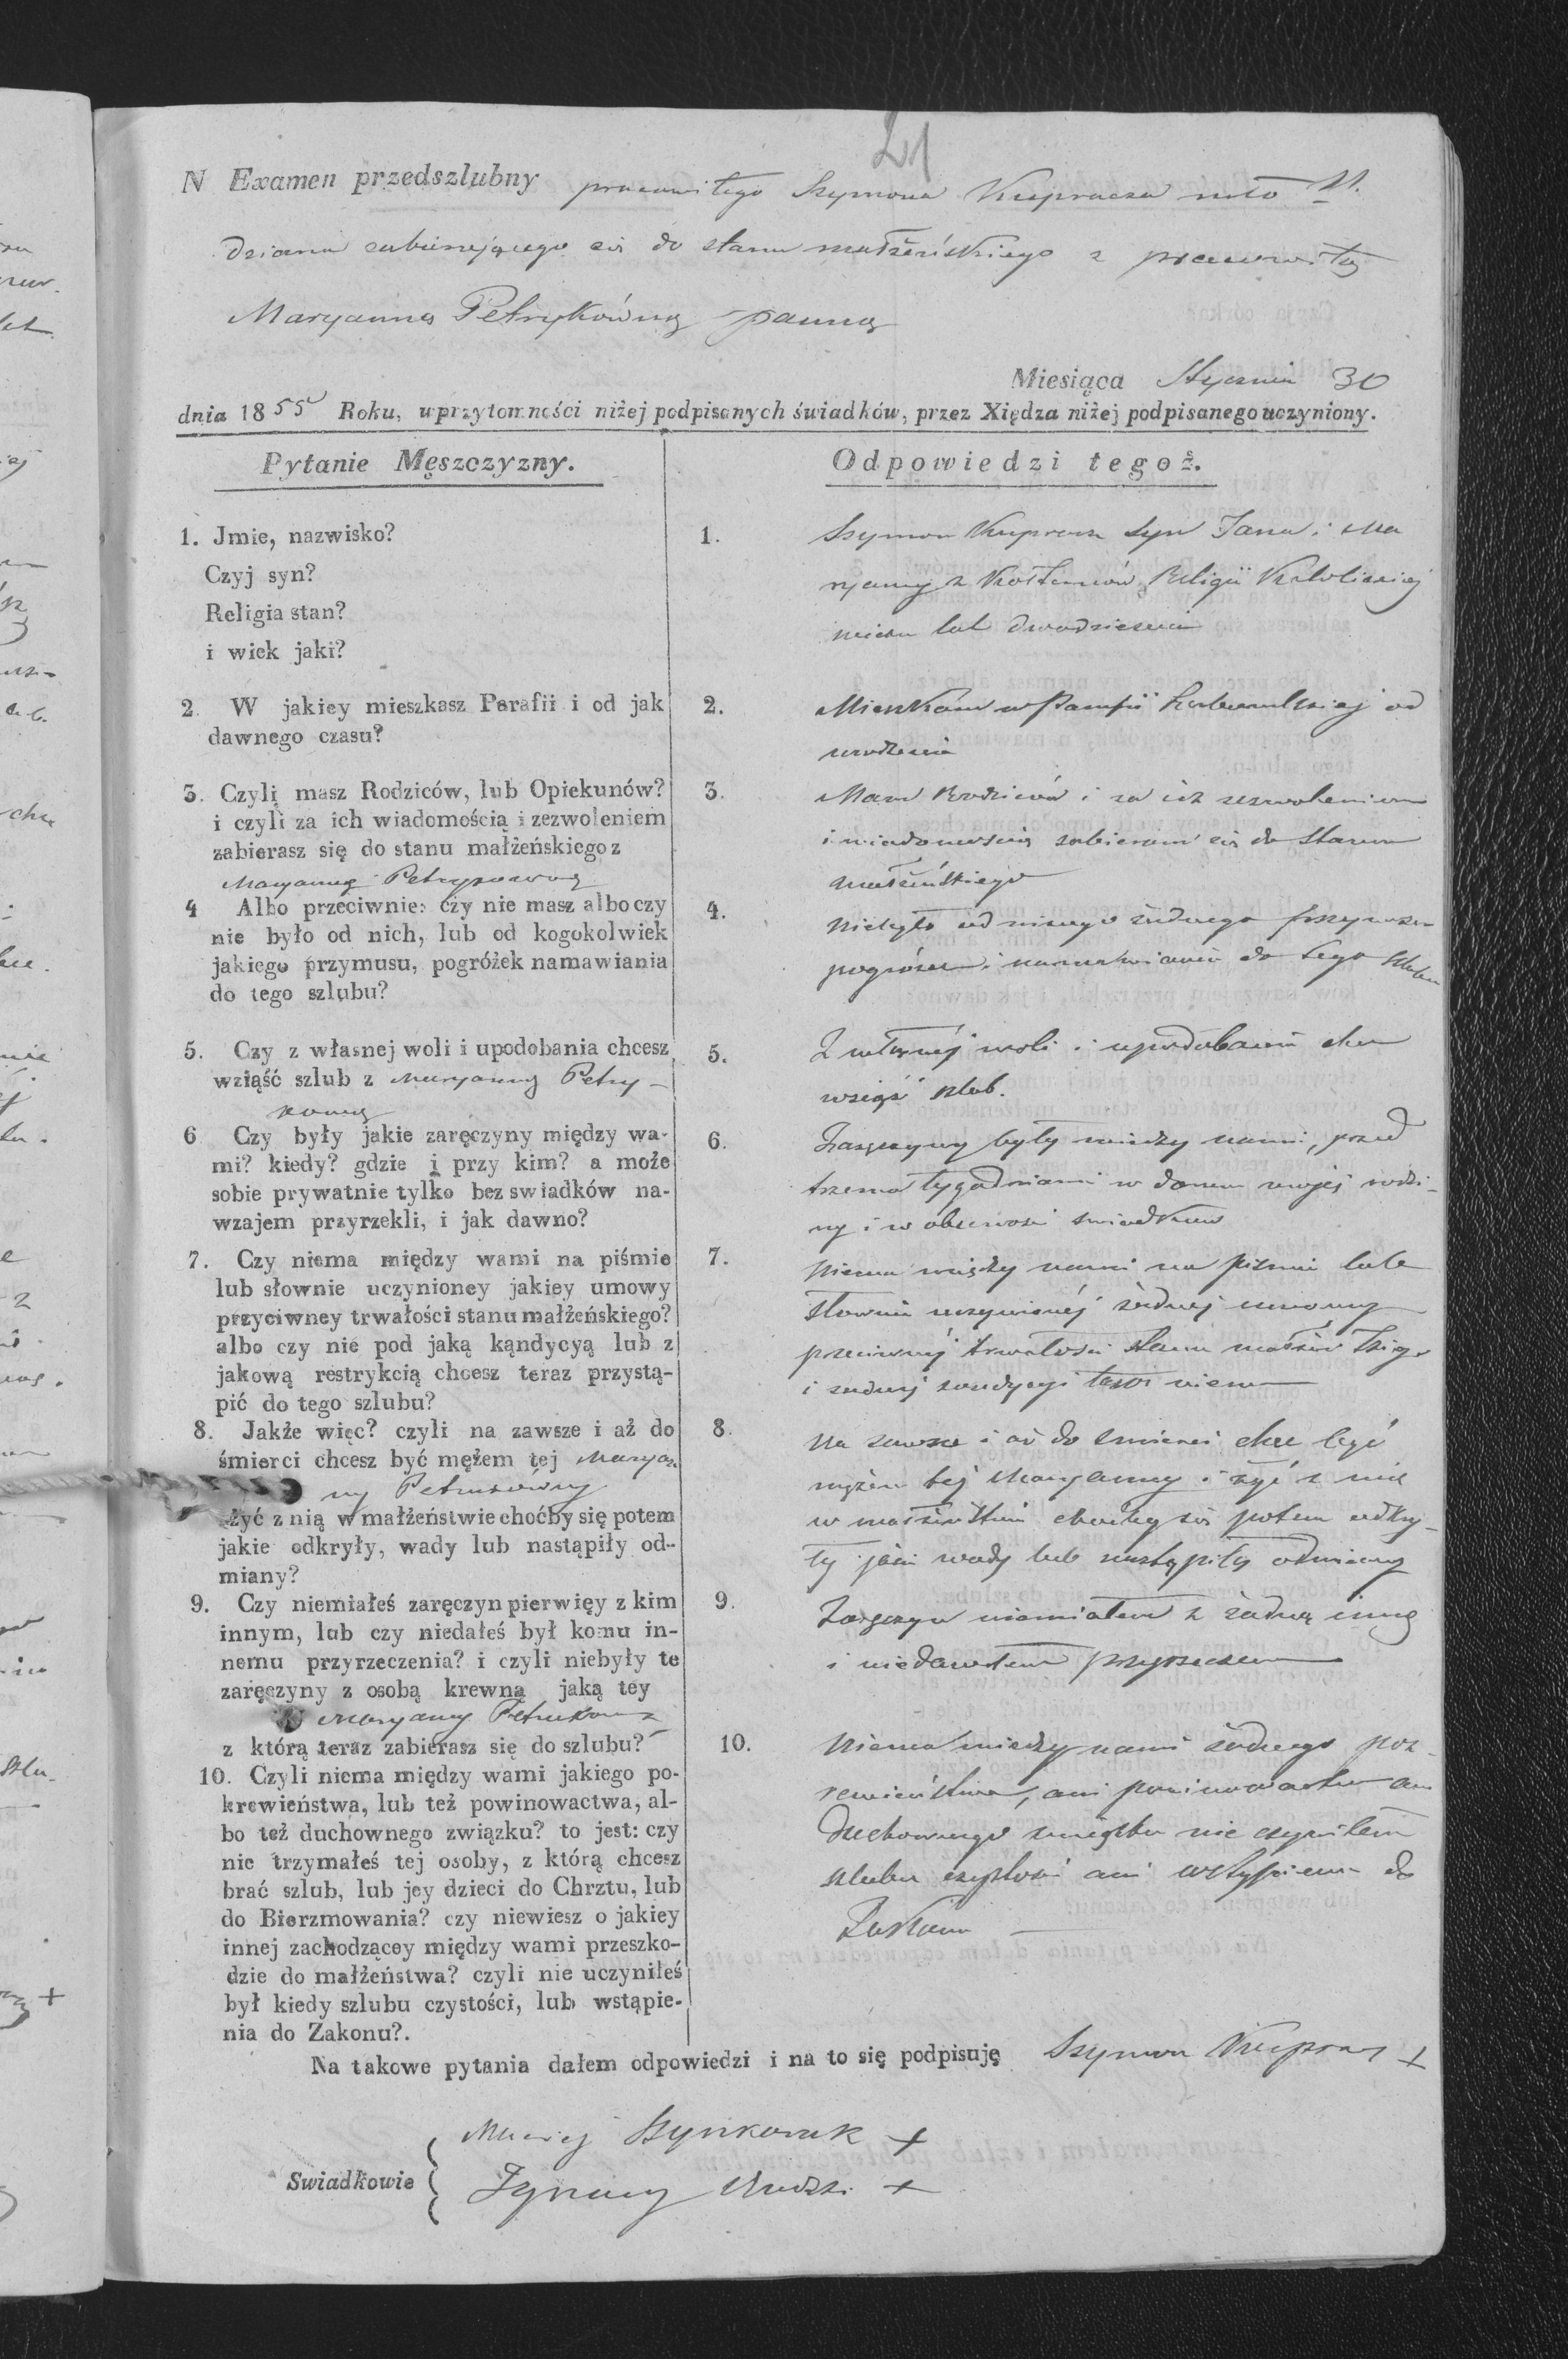 21
N Examen przedszlubny pracowitego Szymona Kupracza mło
dziana zabierającego się do stanu małżeńskiego z pracowitą
Maryanną Petrykówną panną
Miesiąca Stycznia 30
dnia 1855 Roku, w przytomności niżej podpisanych świadków, przez Xiędza niżej podpisanego uczyniony.
Pytanie Męszczyzny.
Odpowiedzi tegoż.
1. Jmie, nazwisko?
Czyj syn?
Religia stan?
i wiek jaki?
1. Szymon Kupracz Syn Jana i Ma
ryanny z Religii Katolickiej
wieku lat dwadzieścia
2. W jakiey mieszkasz Parafii i od jak
dawnego czasu?
2. Mieszkam w Parafii od
urodzenia
3. Czyli masz Rodziców, lub Opiekunów?
i czyli za ich wiadomością i zezwoleniem
zabierasz się do stanu małżeńskiego z
Maryanną
3. Mam Rodziców i za ich zezwoleniem
i wiadomością zabieram się do Stanu
małżeńskiego
4 Albo przeciwnie: czy nie masz albo czy
nie było od nich, lub od kogokolwiek
jakiego przymusu, pogróżek namawiania
do tego szlubu?
4. Niebyło od nikogo żadnego przymusu
pogróżek i namawiania do tego szlubu
5. Czy z własnej woli i upodobania chcesz
wziąść szlub z Maryanną Petry-
koną
5. Z własnéj woli i upodobania chcę
wziąść szlub.
6 Czy były jakie zaręczyny między wa-
mi? kiedy? gdzie i przy kim? a może
sobie prywatnie tylko bez swiadków na-
wzajem przyrzekli, i jak dawno?
6. Zaręczyny były między nami, przed
trzema tygodniami w domu mojej rodzi-
ny i w obecności świadków
7. Czy niema między wami na piśmie
lub słownie uczynioney jakiey umowy
przyciwney trwałości stanu małżeńskiego?
albo czy nie pod jaką kąndycyą lub z
jakową restrykcią chcesz teraz przystą-
pić do tego szlubu?
7. Niema między nami na piśmie lub
słownie uczynionéj żadnej umowy
przeciwnéj trwałości stanu małżeńskiego
i żadnej kondycyi niema
8. Jakże więc? czyli na zawsze i aż do
śmierci chcesz być mężem tej Maryan
ny Petrukówny
żyć z nią w małżeństwie choćby się potem
jakie odkryły, wady lub nastąpiły od-
miany?
8. Na zawsze i aż do śmierci chcę być
mężem tej Maryanny i żyć z nią
w małżeństwie choćby się potem odkry-
ły jakie wady lub nastąpiły odmiany
9. Czy niemiałeś zaręczyn pierwięy z kim
innym, lub czy niedałeś był komu in-
nemu przyrzeczenia? i czyli niebyły te
zaręczyny z osobą krewną jaką tey
Maryanny
z którą teraz zabierasz się do szlubu?
9. Zaręczyn niemiałem z żadną inną
i niedawałem przyrzeczenia
10. Czyli niema między wami jakiego po-
krewieństwa, lub też powinowactwa, al-
bo też duchownego związku? to jest: czy
nie trzymałeś tej osoby, z którą chcesz
brać szlub, lub jey dzieci do Chrztu, lub
do Bierzmowania? czy niewiesz o jakiey
innej zachodzącey między wami przeszko-
dzie do małżeństwa? czyli nie uczyniłeś
był kiedy szlubu czystości, lub wstąpie-
nia do Zakonu?.
10. Niema między nami żadnego pok-
rewieństwa, ani powinowactwa ani
duchownego związku nie czyniłem
szlubu czystości ani wstąpienia do
Zakonu
Na takowe pytania dałem odpowiedzi i na to się podpisuję Szymon Kupracz +
Swiadkowie
Maciej Szynkoruk +
Ignacy +